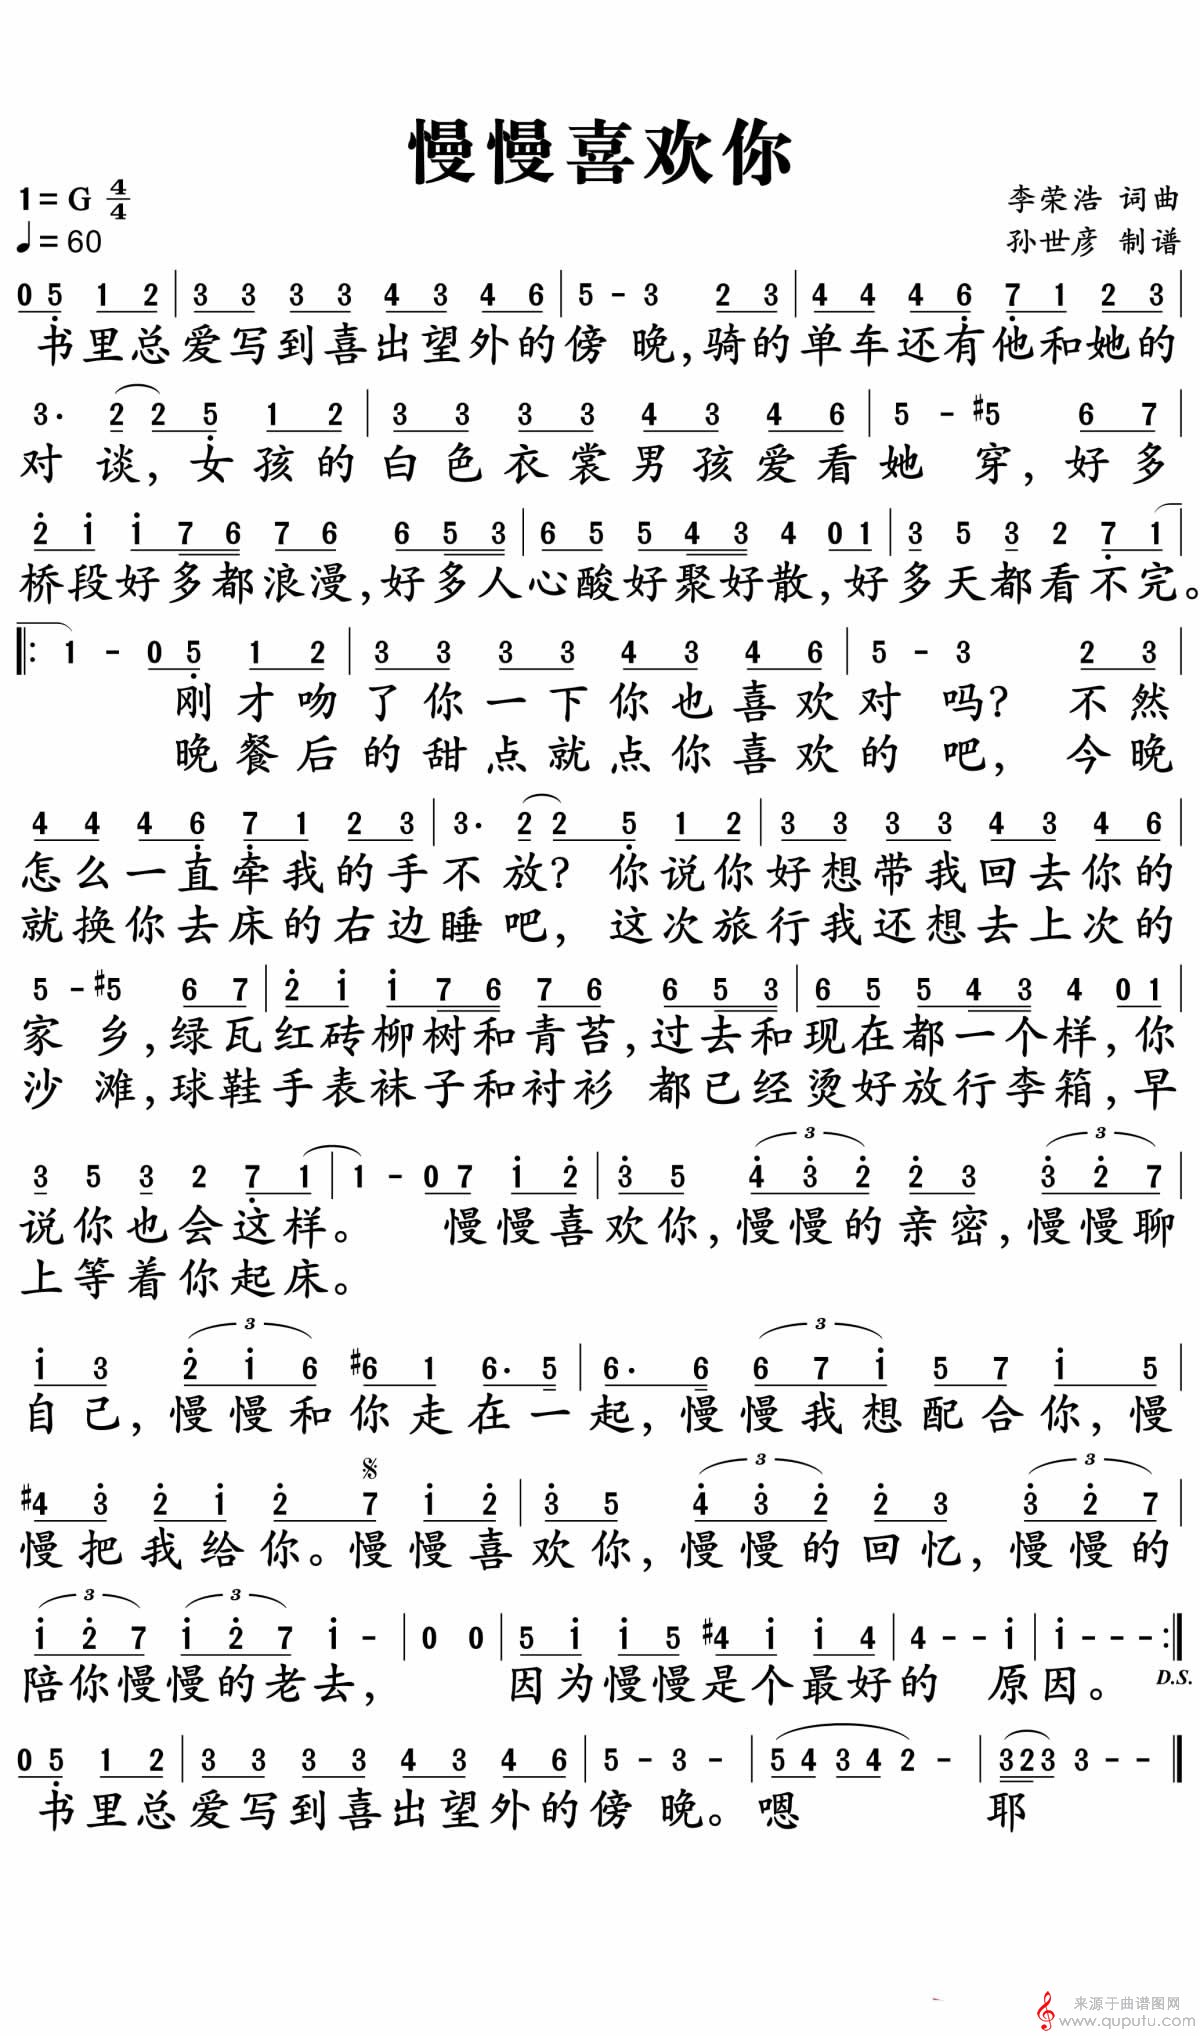 慢慢喜欢你
1=G 4/4
李荣浩 词曲
♩=60
孙世彦 制谱
0 5 1 2 | 3 3 3 3 4 3 4 6 | 5 - 3 2 3 | 4 4 4 6 7 1 2 3 |
书里总爱写到喜出望外的傍晚,骑的单车还有他和她的
3· 2 2 5 1 2 | 3 3 3 3 4 3 4 6 | 5 - #5 6 7 |
对谈,女孩的白色衣裳男孩爱看她穿,好多
2 1 1 7 6 7 6 6 5 3 | 6 5 5 4 3 4 0 1 | 3 5 3 2 7 1 |
桥段好多都浪漫,好多人心酸好聚好散,好多天都看不完。
‖: 1 - 0 5 1 2 | 3 3 3 3 4 3 4 6 | 5 - 3 2 3 |
刚才吻了你一下你也喜欢对吗?不然
晚餐后的甜点就点你喜欢的吧,今晚
4 4 4 6 7 1 2 3 | 3· 2 2 5 1 2 | 3 3 3 3 4 3 4 6 |
怎么一直牵我的手不放?你说你好想带我回去你的
就换你去床的右边睡吧,这次旅行我还想去上次的
5 - #5 6 7 | 2 1 1 7 6 7 6 6 5 3 | 6 5 5 4 3 4 0 1 |
家乡,绿瓦红砖柳树和青苔,过去和现在都一个样,你
沙滩,球鞋手表袜子和衬衫 都已经烫好放行李箱,早
3 5 3 2 7 1 | 1 - 0 7 1 2 | 3 5 4 3 2 2 3 3 2 7 |
说你也会这样。慢慢喜欢你,慢慢的亲密,慢慢聊
上等着你起床。
1 3 2 1 6 #6 1 6· 5 | 6· 6 6 7 1 5 7 1 5 |
自己,慢慢和你走在一起,慢慢我想配合你,慢
#4 3 2 1 2 7 1 2 | 3 5 4 3 2 2 3 3 2 7 |
慢把我给你。慢慢喜欢你,慢慢的回忆,慢慢的
1 2 7 1 2 7 1 - | 0 0 | 5 1 1 5 #4 1 1 4 | 4 - - 1 | 1 - - - :‖
陪你慢慢的老去,因为慢慢是个最好的 原因。 D.S.
0 5 1 2 | 3 3 3 3 4 3 4 6 | 5 - 3 - | 5 4 3 4 2 - | 3 2 3 3 - - ‖
书里总爱写到喜出望外的傍晚。嗯 耶
来源于曲谱图网
www.quputu.com